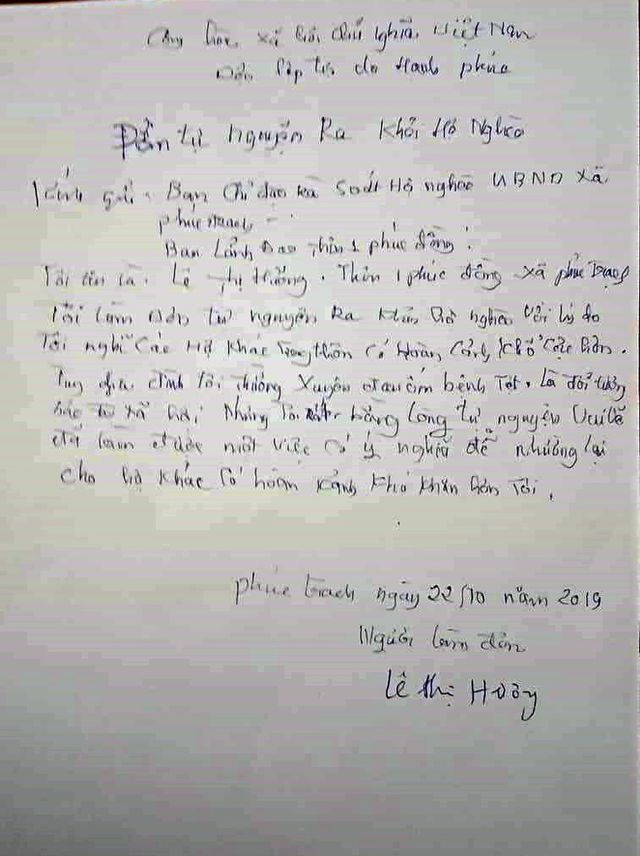 Cộng hòa xã hội chủ nghĩa Việt Nam
Độc lập tự do Hanh phúc
Đơn tự nguyện Ra Khỏi Hộ Nghèo
Kính gửi. Ban Chỉ đạo Rà Soát Hộ nghèo UBND Xã
phúc trạch
Ban Lảnh Đạo thôn 1 phúc đồng.
Tôi tên là. Lê Thị Hường. Thôn 1 phúc đồng xã phúc Trạch
Tôi làm đơn tự nguyện Ra khỏi hộ nghèo với lý do
Tôi nghĩ Các Hộ khác trong thôn Có Hoàn Cảnh khổ hơn.
Tuy gia đình tôi thường Xuyên đau ốm bệnh Tật. Là đối tượng
bảo trợ xã hội Nhưng Tôi rất bằng Lòng tự nguyện Vui vẽ
đã làm được một việc Có ý nghĩa để nhường lại
cho hộ khác Có hoàn cảnh khó khăn hơn Tôi.
phúc trạch ngày 22/10 năm 2019
Người làm đơn
Lê Thị Hường